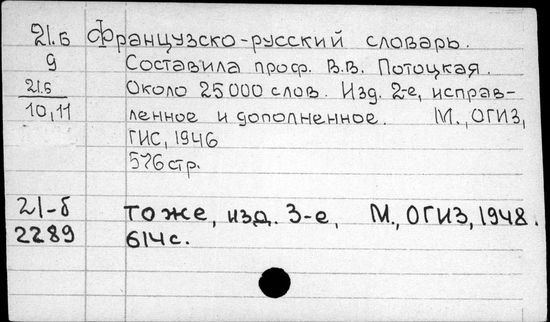 21.б Французско-русский словарь.
9 Составила проф. В.В. Потоцкая.
21.б Около 25000 слов. Изд. 2-е, исправ-
10,11 ленное и дополненное. М., ОГИЗ,
ГИС, 1946
576 стр.
21-б то же, изд. 3-е, М., ОГИЗ, 1948.
2289 614 с.